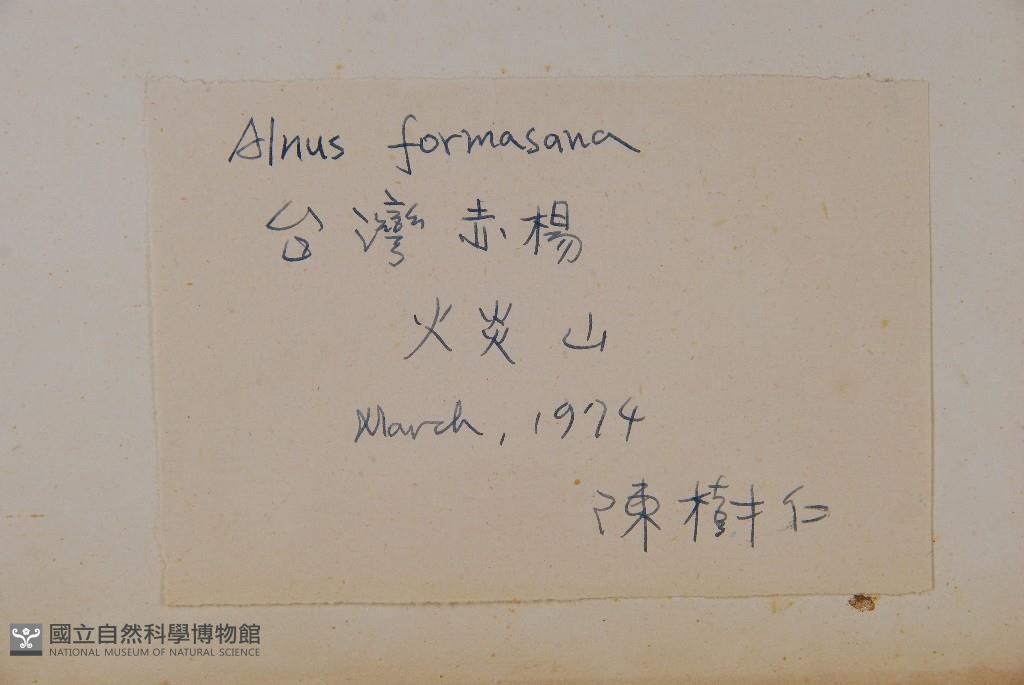 Alnus formasana
台灣赤楊
火炎山
March, 1974
陳樹仁
國立自然科學博物館
NATIONAL MUSEUM OF NATURAL SCIENCE